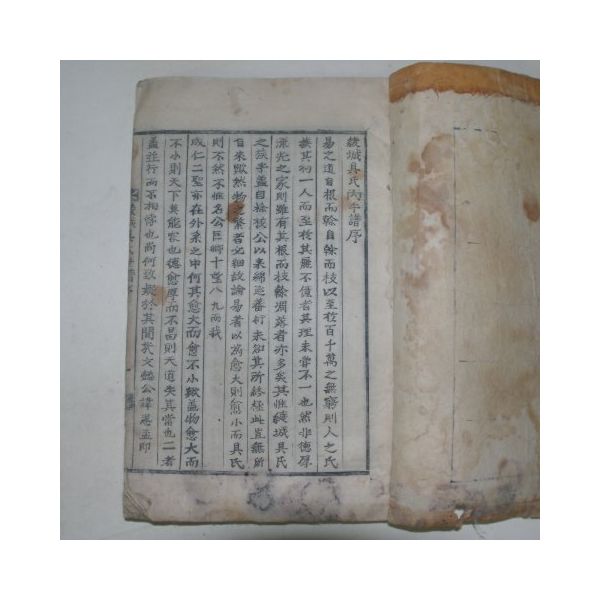 綾城具氏丙午譜序
易之道自根而榦自榦而枝以至於百千萬之無窮則人之氏
族其初一人而至於其麗不億者其理未嘗不一也然非德厚
流光之家則雖有其根而枝榦凋落者亦多矣其惟綾城具氏
之族乎盖自 公以來綿延蕃衍未知其所終極此豈無所
自來歟然物之 者必細故論易者以爲愈大則愈小而具氏
則不然不惟名公巨卿十望八九而我
成仁二聖亦在外系之中何其愈大而愈不小歟盖物愈大而
不小則天下莫能容也德愈厚而不昌則天道失其當也二者
盖並行而不相悖也尚何致疑於其間哉文 公諱 孟即